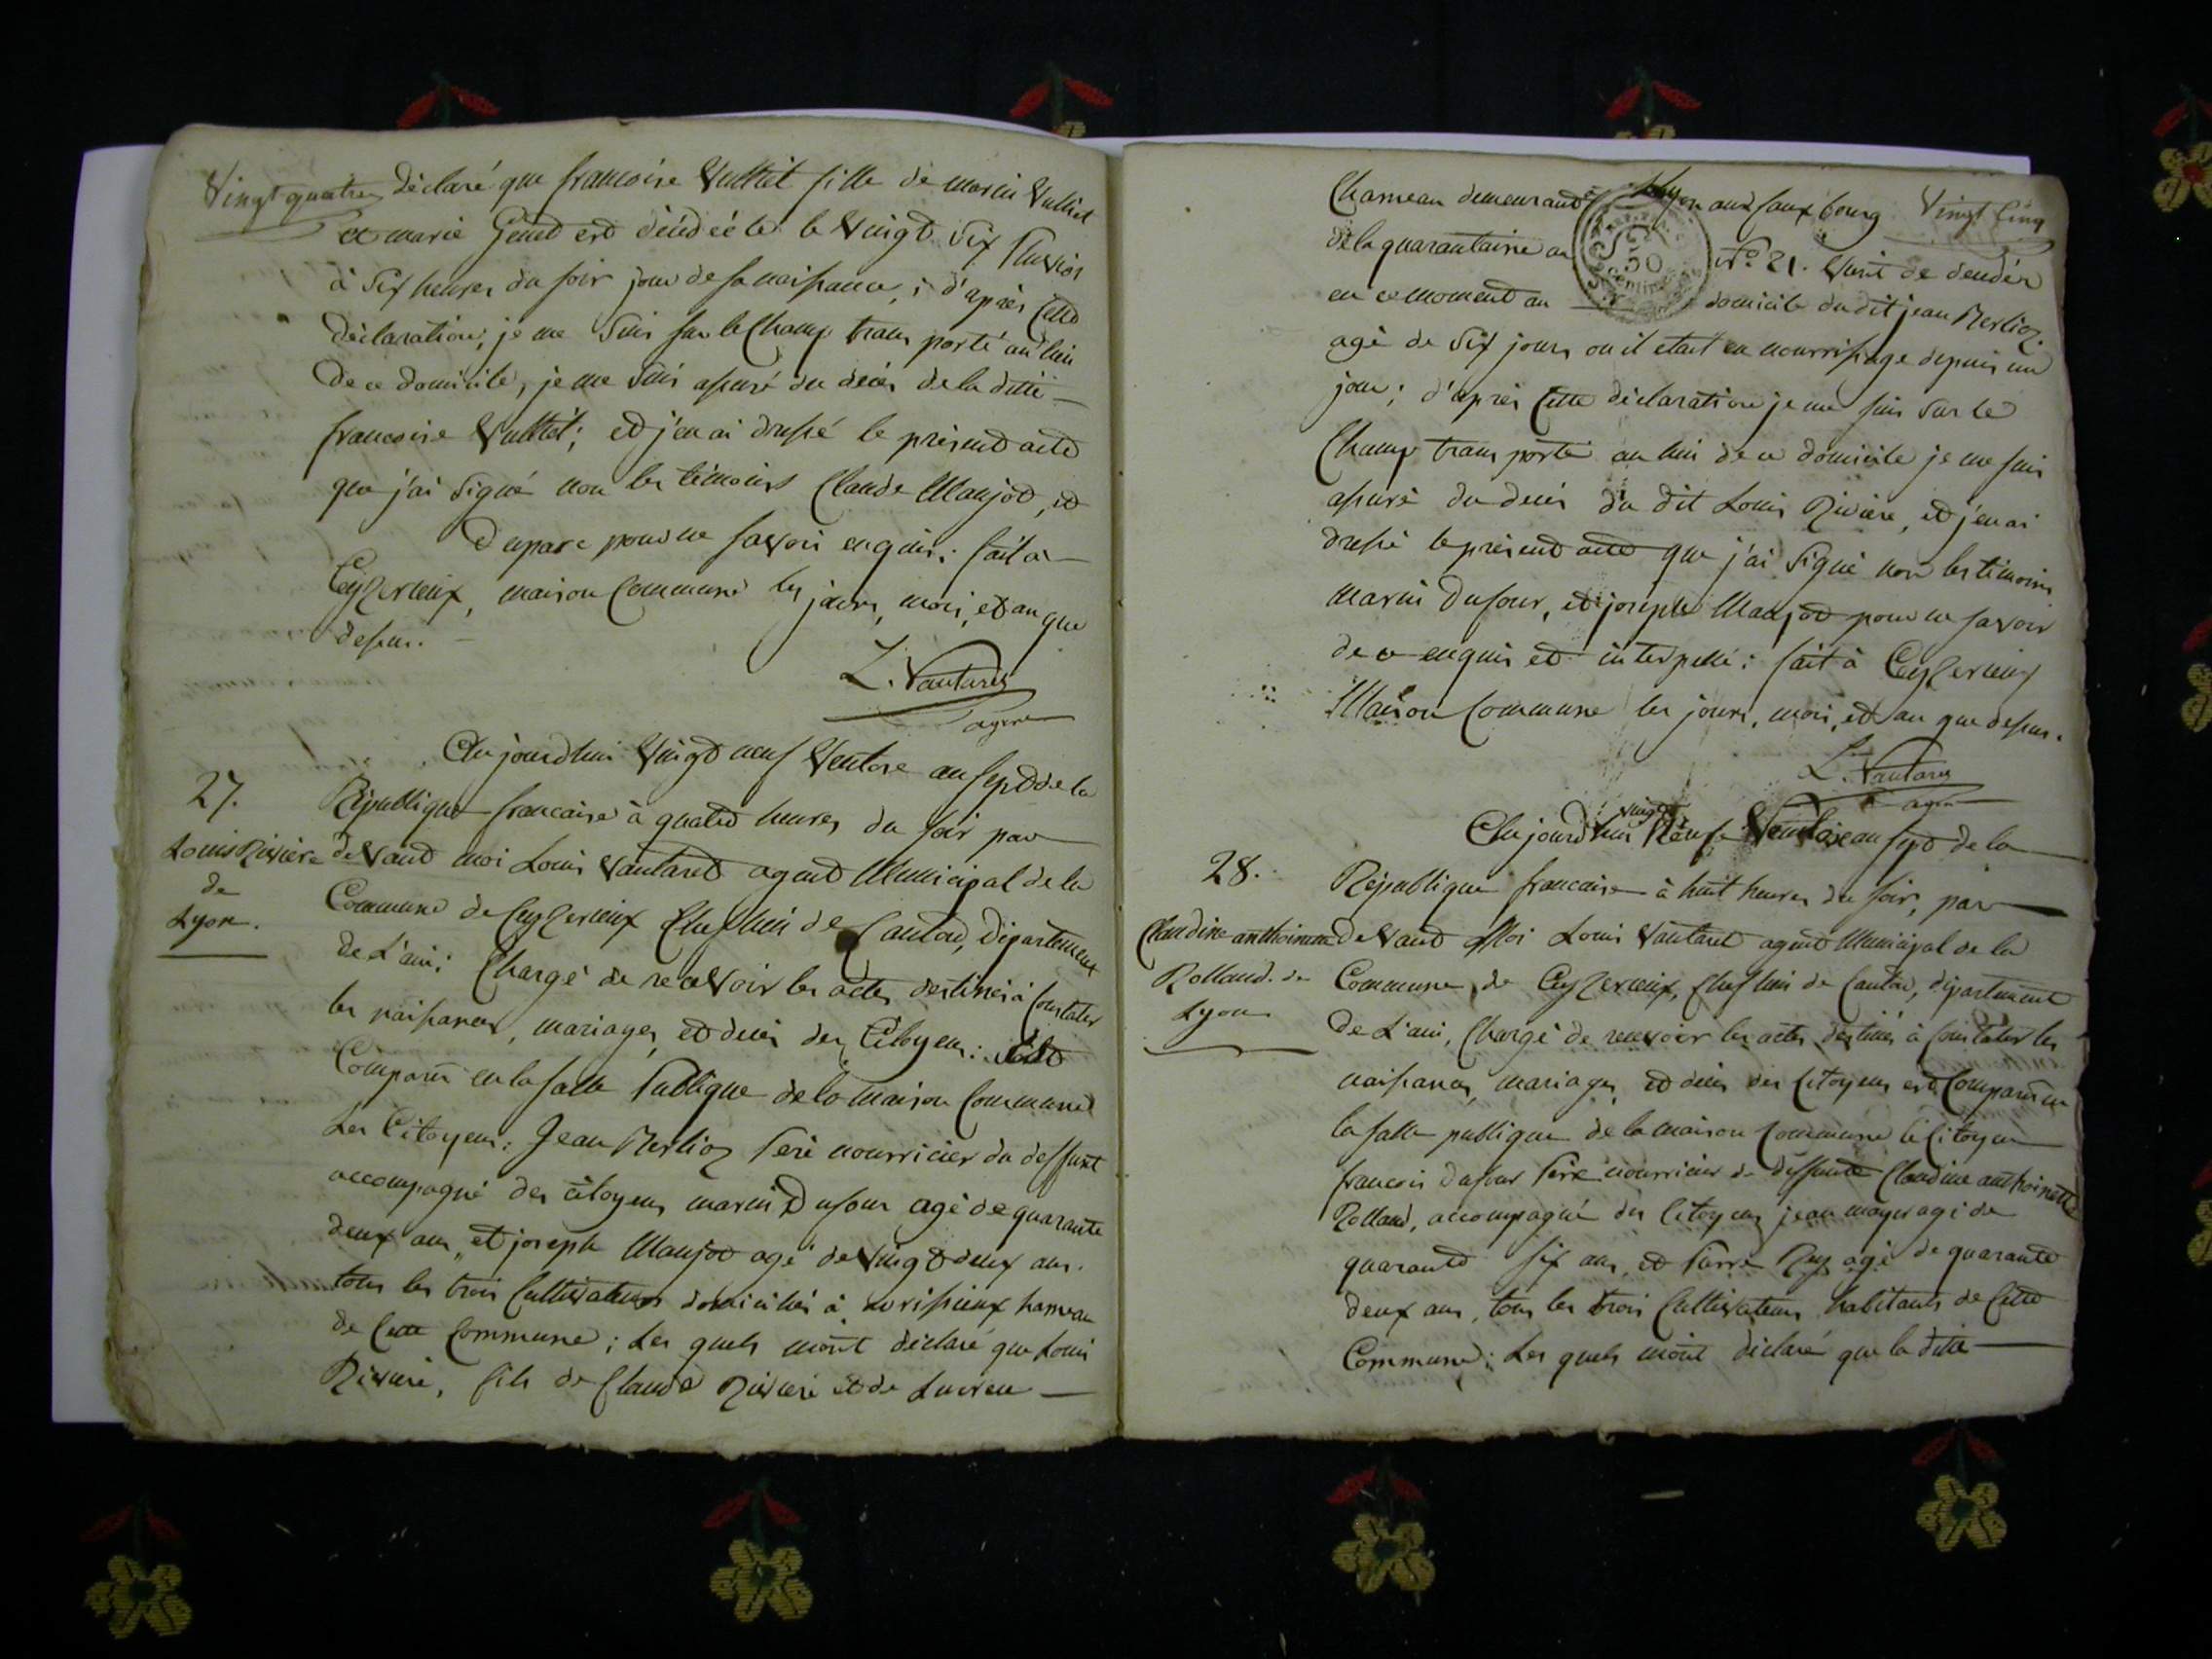 Vingt quatre
déclaré que francoise Vulliet fille de marin Vulliet
et marie Genet est décédée le vingt six Pluviose
à six heures du soir jour de sa naissance ; d'après cette
déclaration, je me suis sur le Champ transporté au lieu
de ce domicile, je me suis assuré du décès de la ditte
francoise Vulliet ; et j'en ai dressé le présent acte
que j'ai signé non les témoins Claude Maujot, et
pour ne savoir enquis : fait a
Ceyzerieux, maison Commune les jours, mois, et an que
dessus.
L. Vantaret
agent
27.
Louis Riviere
de
Lyon.
Aujourdhui Vingt neuf Ventose an sept de la
République francaise à quatre heures du soir par
devant moi Louis Vantaret agent Municipal de la
Commune de Ceyzerieux Chef lieu de Canton, département
de L'ain : Chargé de recevoir les actes destinés à Constater
les naissances, mariages, et décès des Citoyens : est
Comparu en la salle Publique de la maison Commune
Les Citoyens : Jean Merlioz Pere nourricier du deffunt
accompagné des citoyens marin Dufour agé de quarante
deux ans, et joseph Maujot agé de vingt deux ans.
tous les trois Cultivateurs domiciliés à avrissieux hameau
de Cette Commune ; Les quels m'ont déclaré que Louis
Riviere, fils de Claude Riviere et de Lucrece
Vingt Cinq
Chameau demeurant à Lyon aux faux bourg
de la quarantaine au N.° 21. vient de deceder
50
en ce moment au domicile du dit jean Merlioz.
agé de six jours ou il etait en nourrissage depuis un
jour ; d'après Cette déclaration je me suis sur le
Champ transporté au lieu de ce domicile je me suis
assuré du decès du dit Louis Riviere, et j'en ai
dressé le présent acte que j'ai signé non les témoins
Marin Dufour, et joseph Maujot pour ne savoir
de ce enquis et interpellé : fait à Ceyzerieux
Maison Commune les jours, mois, et an que dessus.
L. Vantaret
agent
28.
Claudine anthoinette
Rolland. de
Lyon
vingt
Aujourdhui Neuf Ventose an sept de la
République francaise à huit heures du soir, par
devant Moi Louis Vantaret agent Municipal de la
Commune de Ceyzerieux, Chef lieu de Canton, département
de L'ain, Chargé de recevoir les actes destinés à Constater les
naissances, mariages, et décès des Citoyens est Comparu en
la salle publique de la maison Commune le Citoyen
francois Dufour Pere nourricier de deffunte Claudine anthoinette
Rolland, accompagné des Citoyens jean agé de
quarante six ans, et Pierre Rey agé de quarante
deux ans, tous les trois Cultivateurs habitants de Cette
Commune ; Les quels m'ont déclaré que la dite